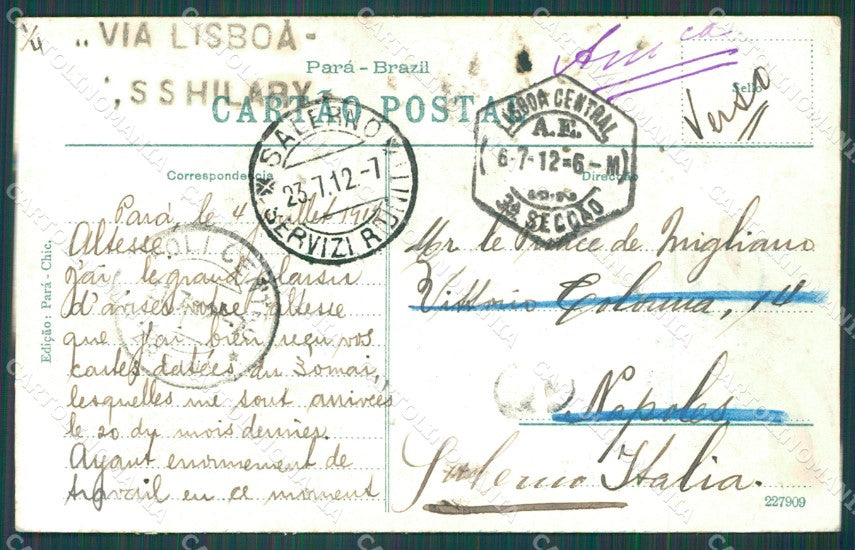 „VIA LISBOA-
Pará - Brazil
, S S HILARY
CARTÃO POSTAL
Sello
Verso
SALERNO
23.7.12.-7
SERVIZI
LISBOA CENTRAL
A. E.
6-7-12=6-M
3ª SECÇÃO
Correspondencia
Direcção
Pará, le 4 Juillet 191
Altesse
j'ai le grand plaisir
d'aviser votre altesse
que j'ai bien reçu vos
cartes datées du Somai,
lesquelles me sont arrivées
le 20 du mois dernier.
Ayant enormement de
travail en ce moment
Mr le Prince de Migliano
Vittorio Colonna, 14
Napoles
Salerno Italia.
Edição: Pará-Chic.
227909
CARTOLINOMANIA